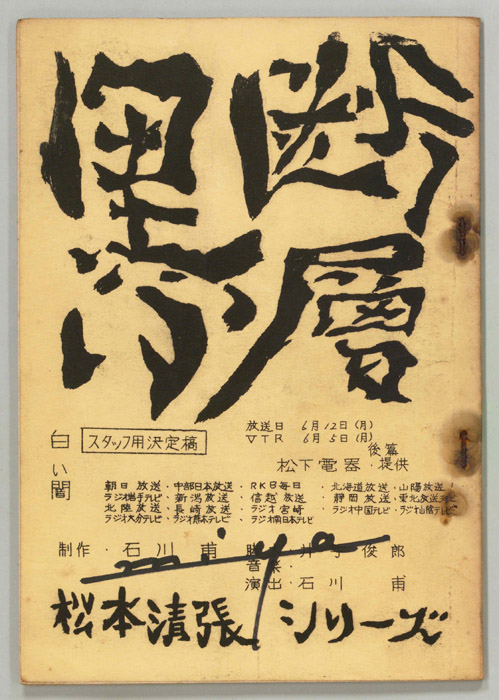 黒の
断層
放送日 6月12日(月)
VTR 6月5日(月)
白い闇
スタッフ用決定稿
後篇
松下電器・提供
朝日放送・中部日本放送・RKB毎日・北海道放送・山陽放送
ラジオ岩手テレビ・新潟放送・信越放送・静岡放送・東北放送
北陸放送・長崎放送・ラジオ宮崎・ラジオ中国テレビ・ラジオ山陰テレビ
ラジオ大分テレビ・ラジオ熊本テレビ・ラジオ南日本テレビ
制作・石川 甫
井手俊郎
音楽・
演出・石川 甫
miya
松本清張シリーズ